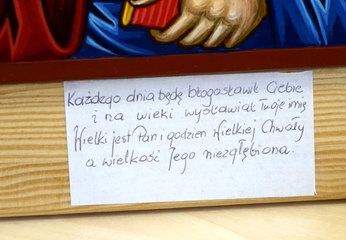 Każdego dnia będę błogosławił Ciebie
i na wieki wysławiał Twoje imię
Wielki jest Pan i godzien wielkiej Chwały
a wielkość Jego niezgłębiona.